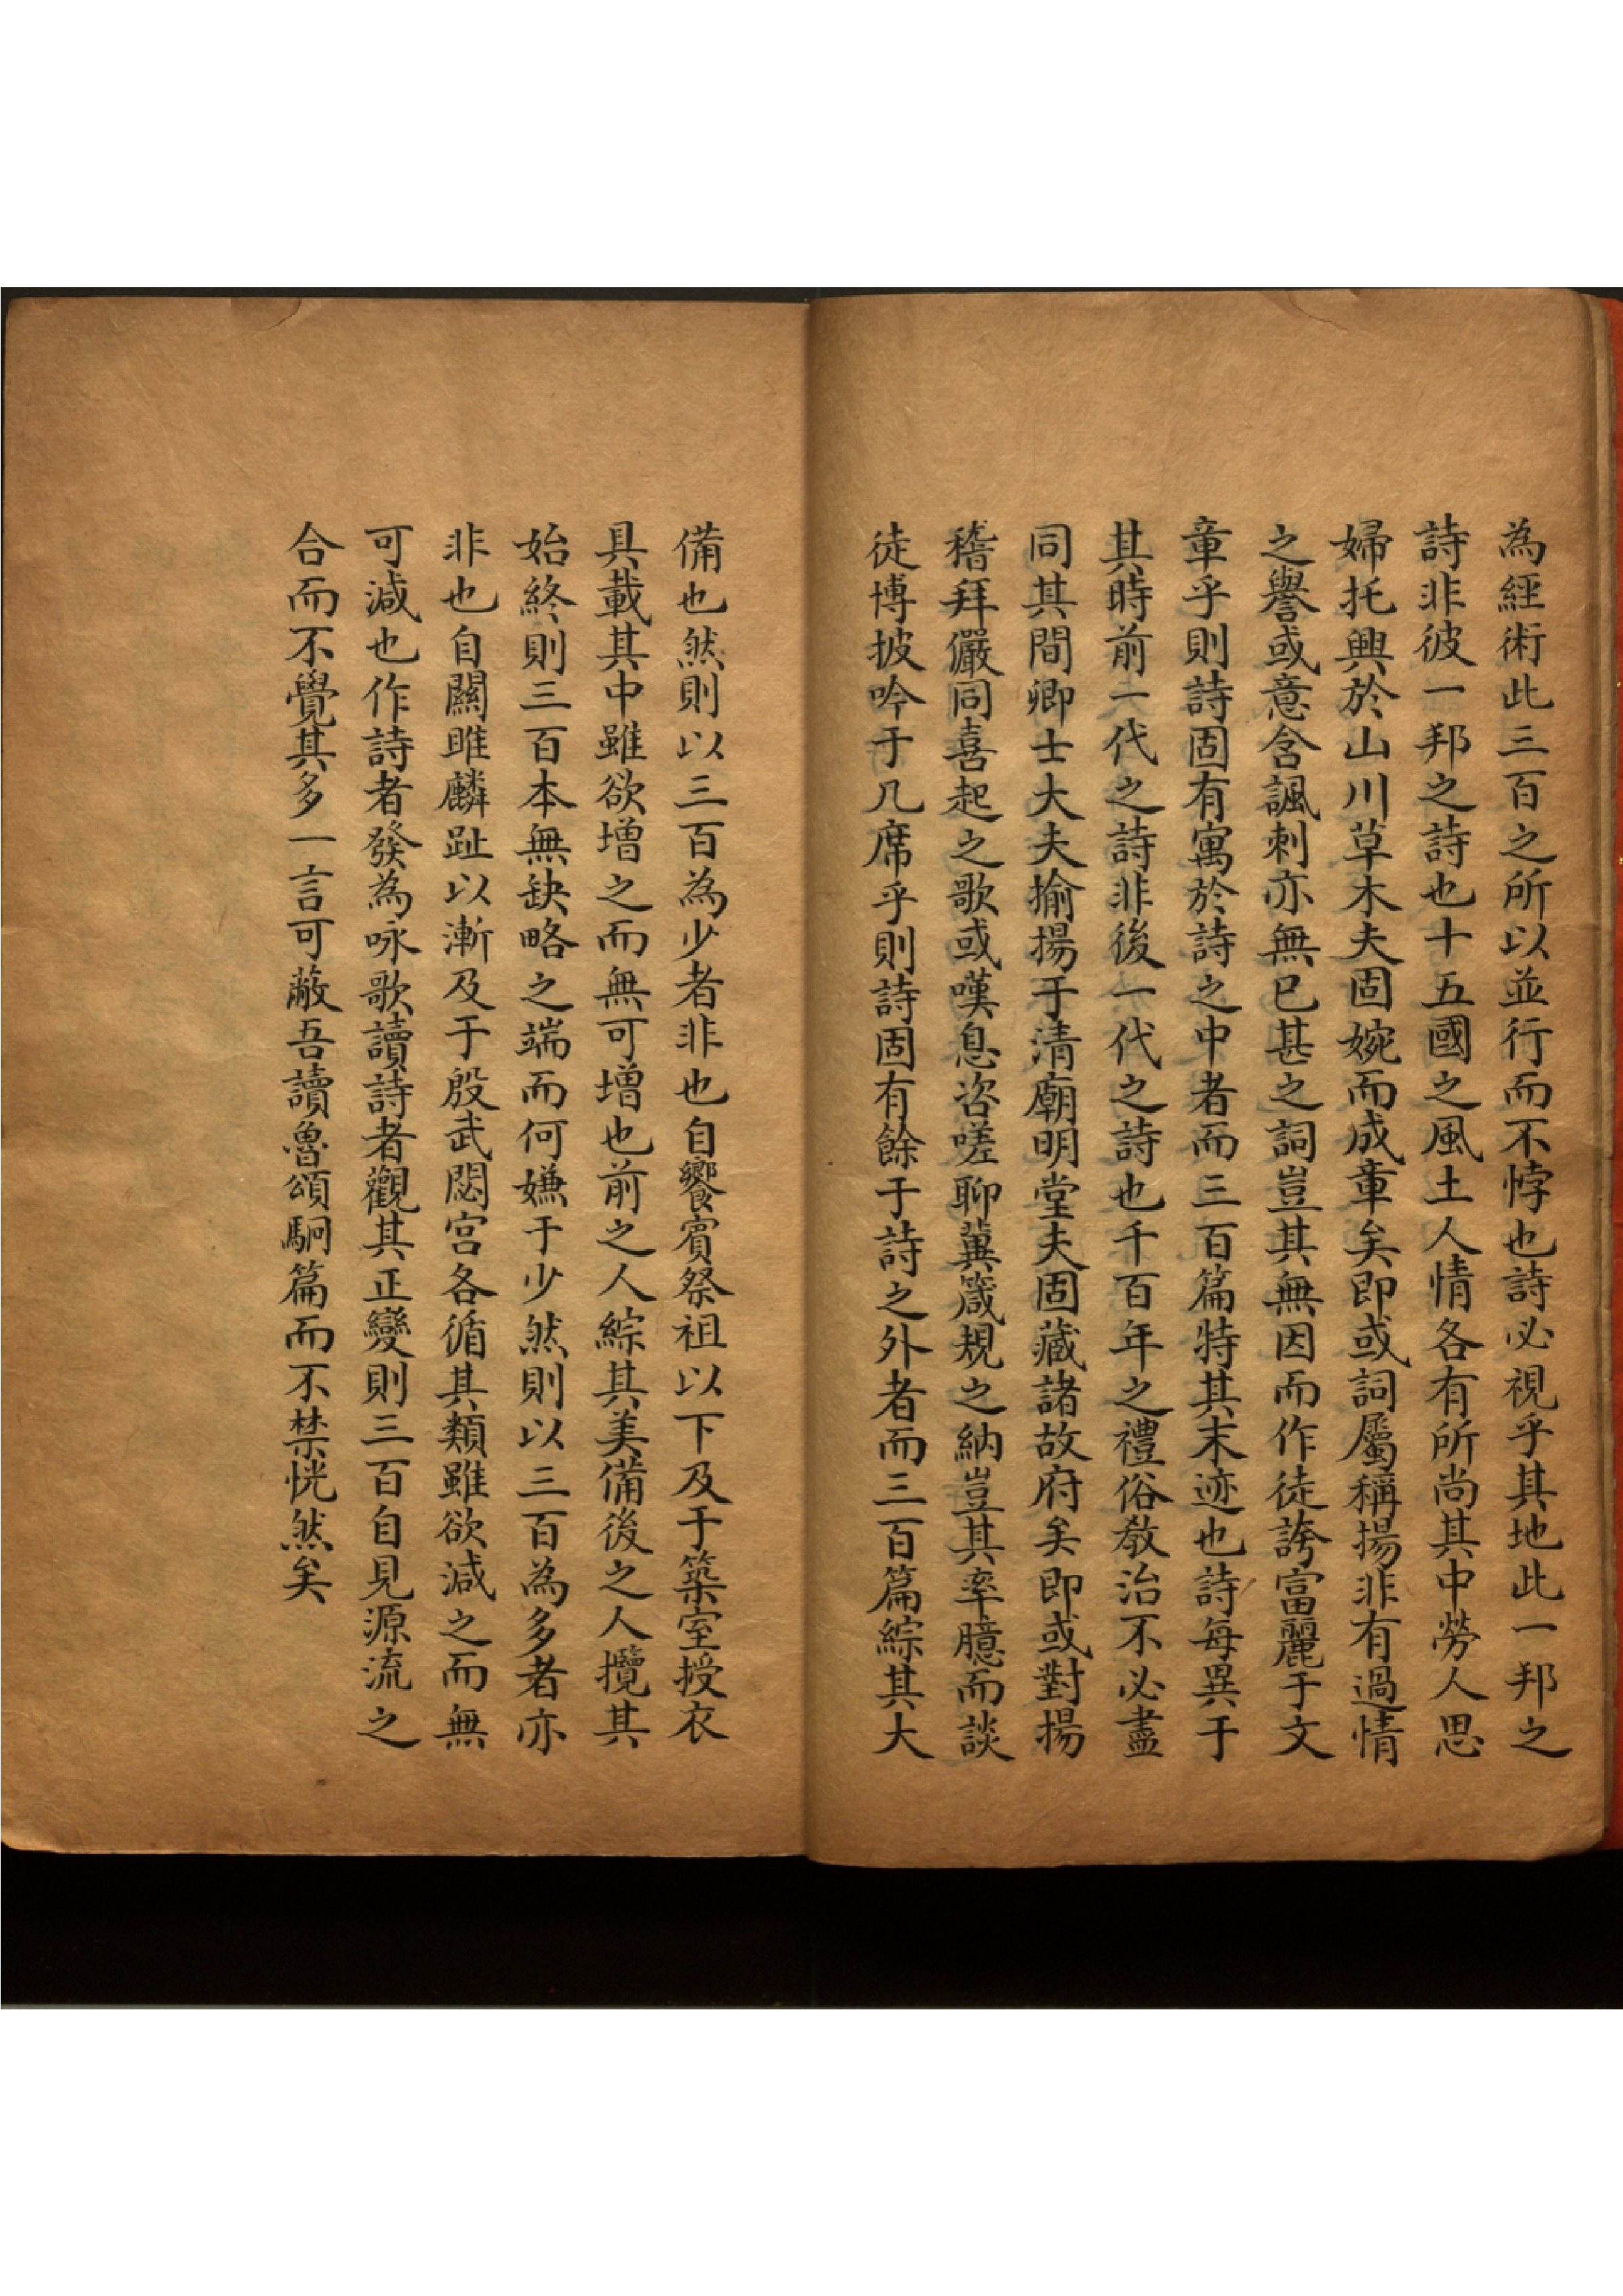 為經術此三百之所以並行而不悖也詩必視乎其地此一邦之
詩非彼一邦之詩也十五國之風土人情各有所尚其中勞人思
婦托興於山川草木夫固婉而成章矣即或詞屬稱揚非有過情
之譽或意含諷刺亦無已甚之詞豈其無因而作徒誇富麗于文
章乎則詩固有寓於詩之中者而三百篇特其末迹也詩每異于
其時前一代之詩非後一代之詩也千百年之禮俗教治不必盡
同其間卿士大夫揄揚于清廟明堂夫固藏諸故府矣即或對揚
稽拜儼同喜起之歌或嘆息咨嗟聊冀箴規之納豈其率臆而談
徒博披吟于几席乎則詩固有餘于詩之外者而三百篇綜其大
備也然則以三百為少者非也自饗賓祭祖以下及于築室授衣
具載其中雖欲增之而無可增也前之人綜其美備後之人攬其
始終則三百本無缺略之端而何嫌于少然則以三百為多者亦
非也自關雎麟趾以漸及于殷武閟宮各循其類雖欲減之而無
可減也作詩者發為咏歌讀詩者觀其正變則三百自見源流之
合而不覺其多一言可蔽吾讀魯頌駉篇而不禁恍然矣